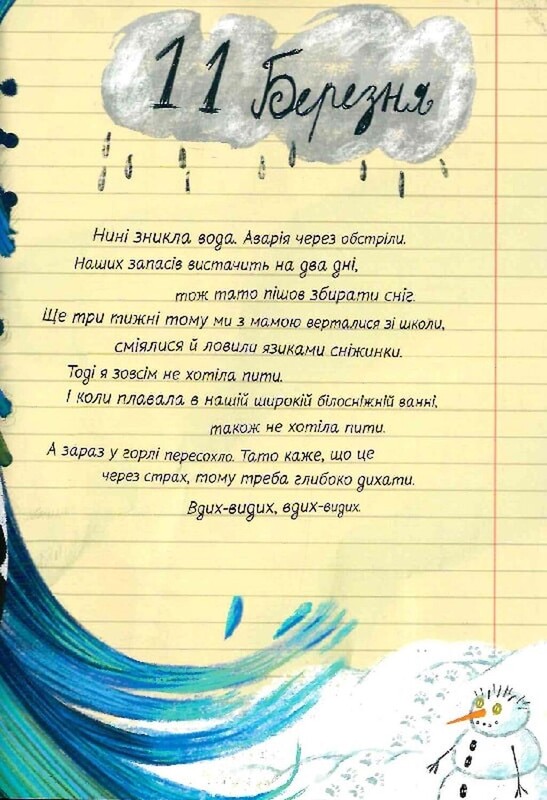 11 Березня
Нині зникла вода. Аварія через обстріли.
Наших запасів вистачить на два дні,
тож тато пішов збирати сніг.
Ще три тижні тому ми з мамою верталися зі школи,
сміялися й ловили язиками сніжинки.
Тоді я зовсім не хотіла пити.
І коли плавала в нашій широкій білосніжній ванні,
також не хотіла пити.
А зараз у горлі пересохло. Тато каже, що це
через страх, тому треба глибоко дихати.
Вдих-видих, вдих-видих.